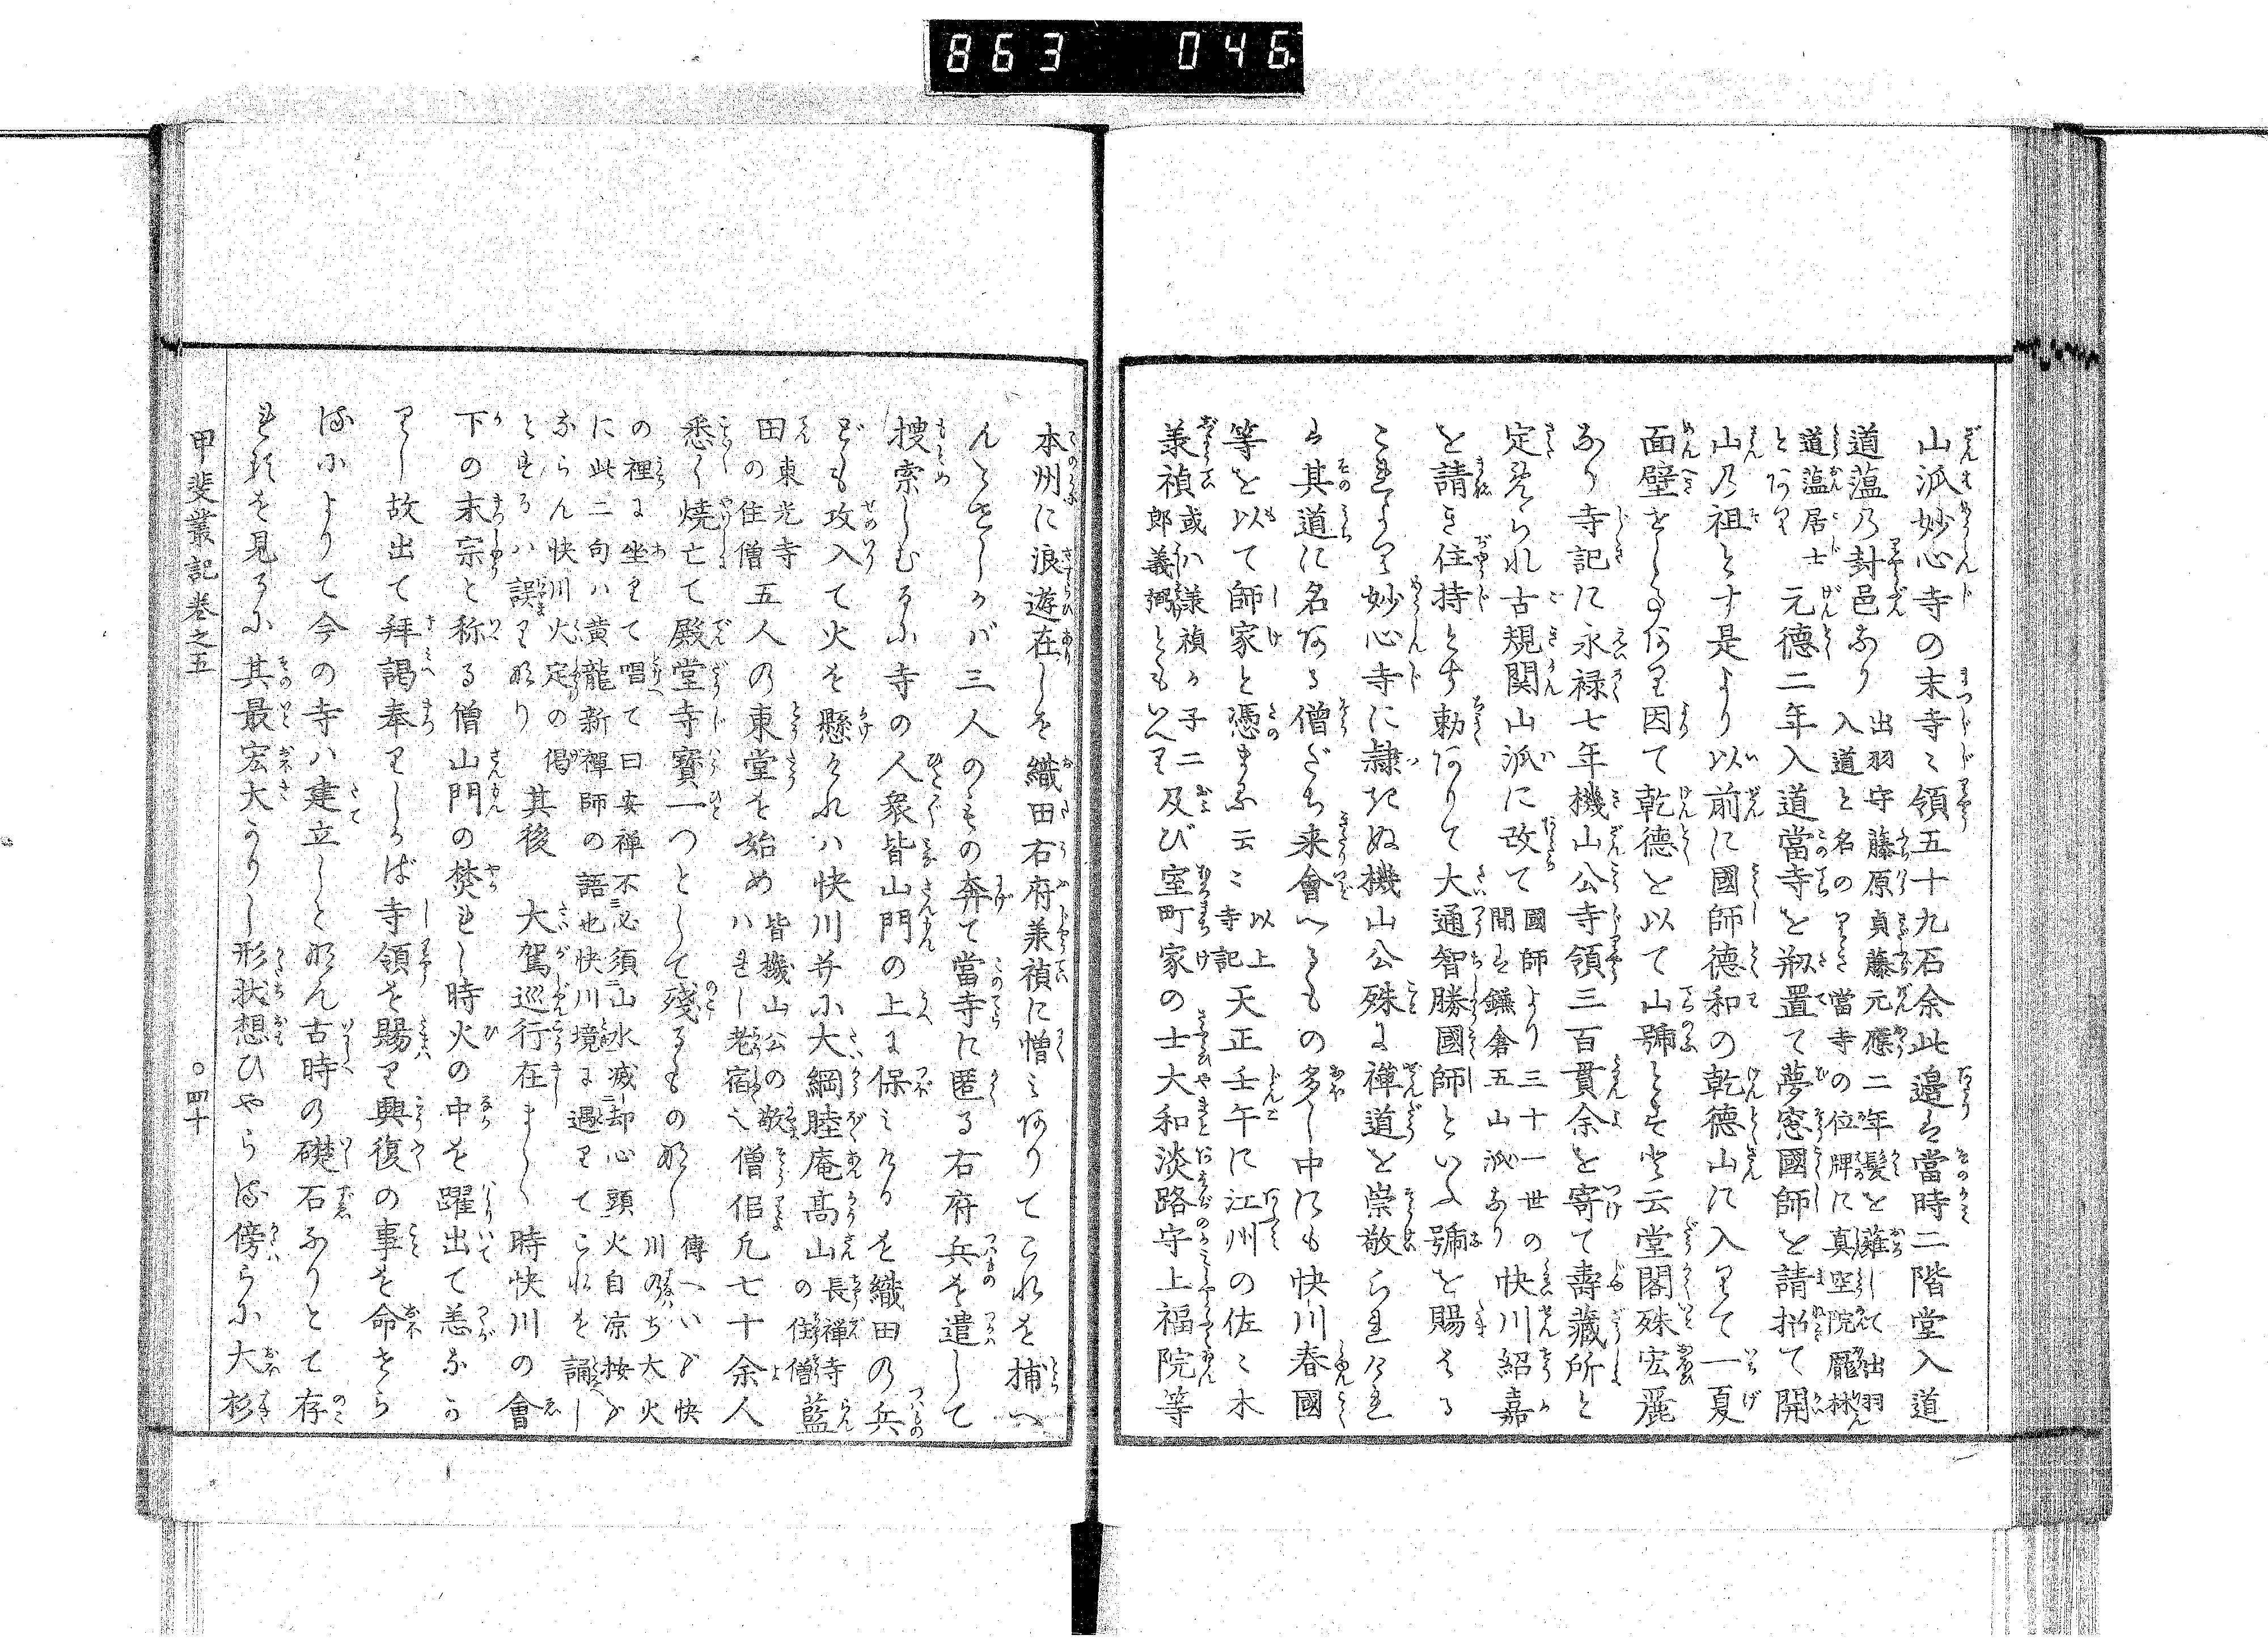 863 046
山派妙心寺の末寺〻領五十九石余此邉は當時二階堂入道
道薀の封邑なり
出羽守藤原貞藤元應二年髪を薙して出羽
入道と名のりき當寺の位牌に真空院龐林
道薀居士
とあり
元徳二年入道當寺を剏置て夢窓國師を請招て開
山の祖とす是より以前に國師徳和の乾徳山に入りて一夏
面壁をしるゝあり因て乾徳を以て山號とそ云堂閣殊宏麗
なり寺記に永禄七年機山公寺領三百貫余を寄て壽藏所と
定められ古規関山派に改て
國師より三十一世の
間は鎌倉五山派なり
快川紹嘉
を請き住持とす勅ありて大通智勝國師といふ號を賜はる
これより妙心寺に隷きぬ機山公殊に禅道を崇敬られけれ
は其道に名ある僧だち来會へるもの多し中にも快川春國
等を以て師家と憑まふ云〻
以上
寺記
天正壬午に江州の佐〻木
義禎
或ハ義禎の子二
郎義弼ともいへり
及び室町家の士大和淡路守上福院等
本州に浪遊在しを織田右府義禎に憎ミありてこれを捕へ
んとせしかバ三人のもの奔て當寺に匿る右府兵を遣して
捜索しむるに寺の人衆皆山門の上に保ミけるを織田の兵
ども攻入て火を懸けれハ快川并に大綱睦庵高山
長禅寺
の住僧
藍
田
東光寺
の住僧
五人の東堂を始め
皆機山公の敬
ハれし老宿也
僧侶凡七十余人
悉く焼亡て殿堂寺寳一つとして残るもの無し
傳へいふ快
川のち大火
の裡に坐りて唱て曰安禅不必須山水滅却心頭火自凉按ふ
に此二句ハ黄龍新禅師の語也快川境に遇りてこれを誦し
ならん快川火定の偈
とするハ誤りなり
其後　大駕巡行在まし〳〵時快川の會
下の末宗と称る僧山門の焚れし時火の中を躍出て恙なか
りし故出て拜謁奉りしかば寺領を賜り興復の事を命せら
るによりて今の寺ハ建立しと也ん古時の礎石なりとて存
れるを見るに其最宏大なりし形状想ひやらる傍らに大杉
甲斐叢記巻之五
○四十